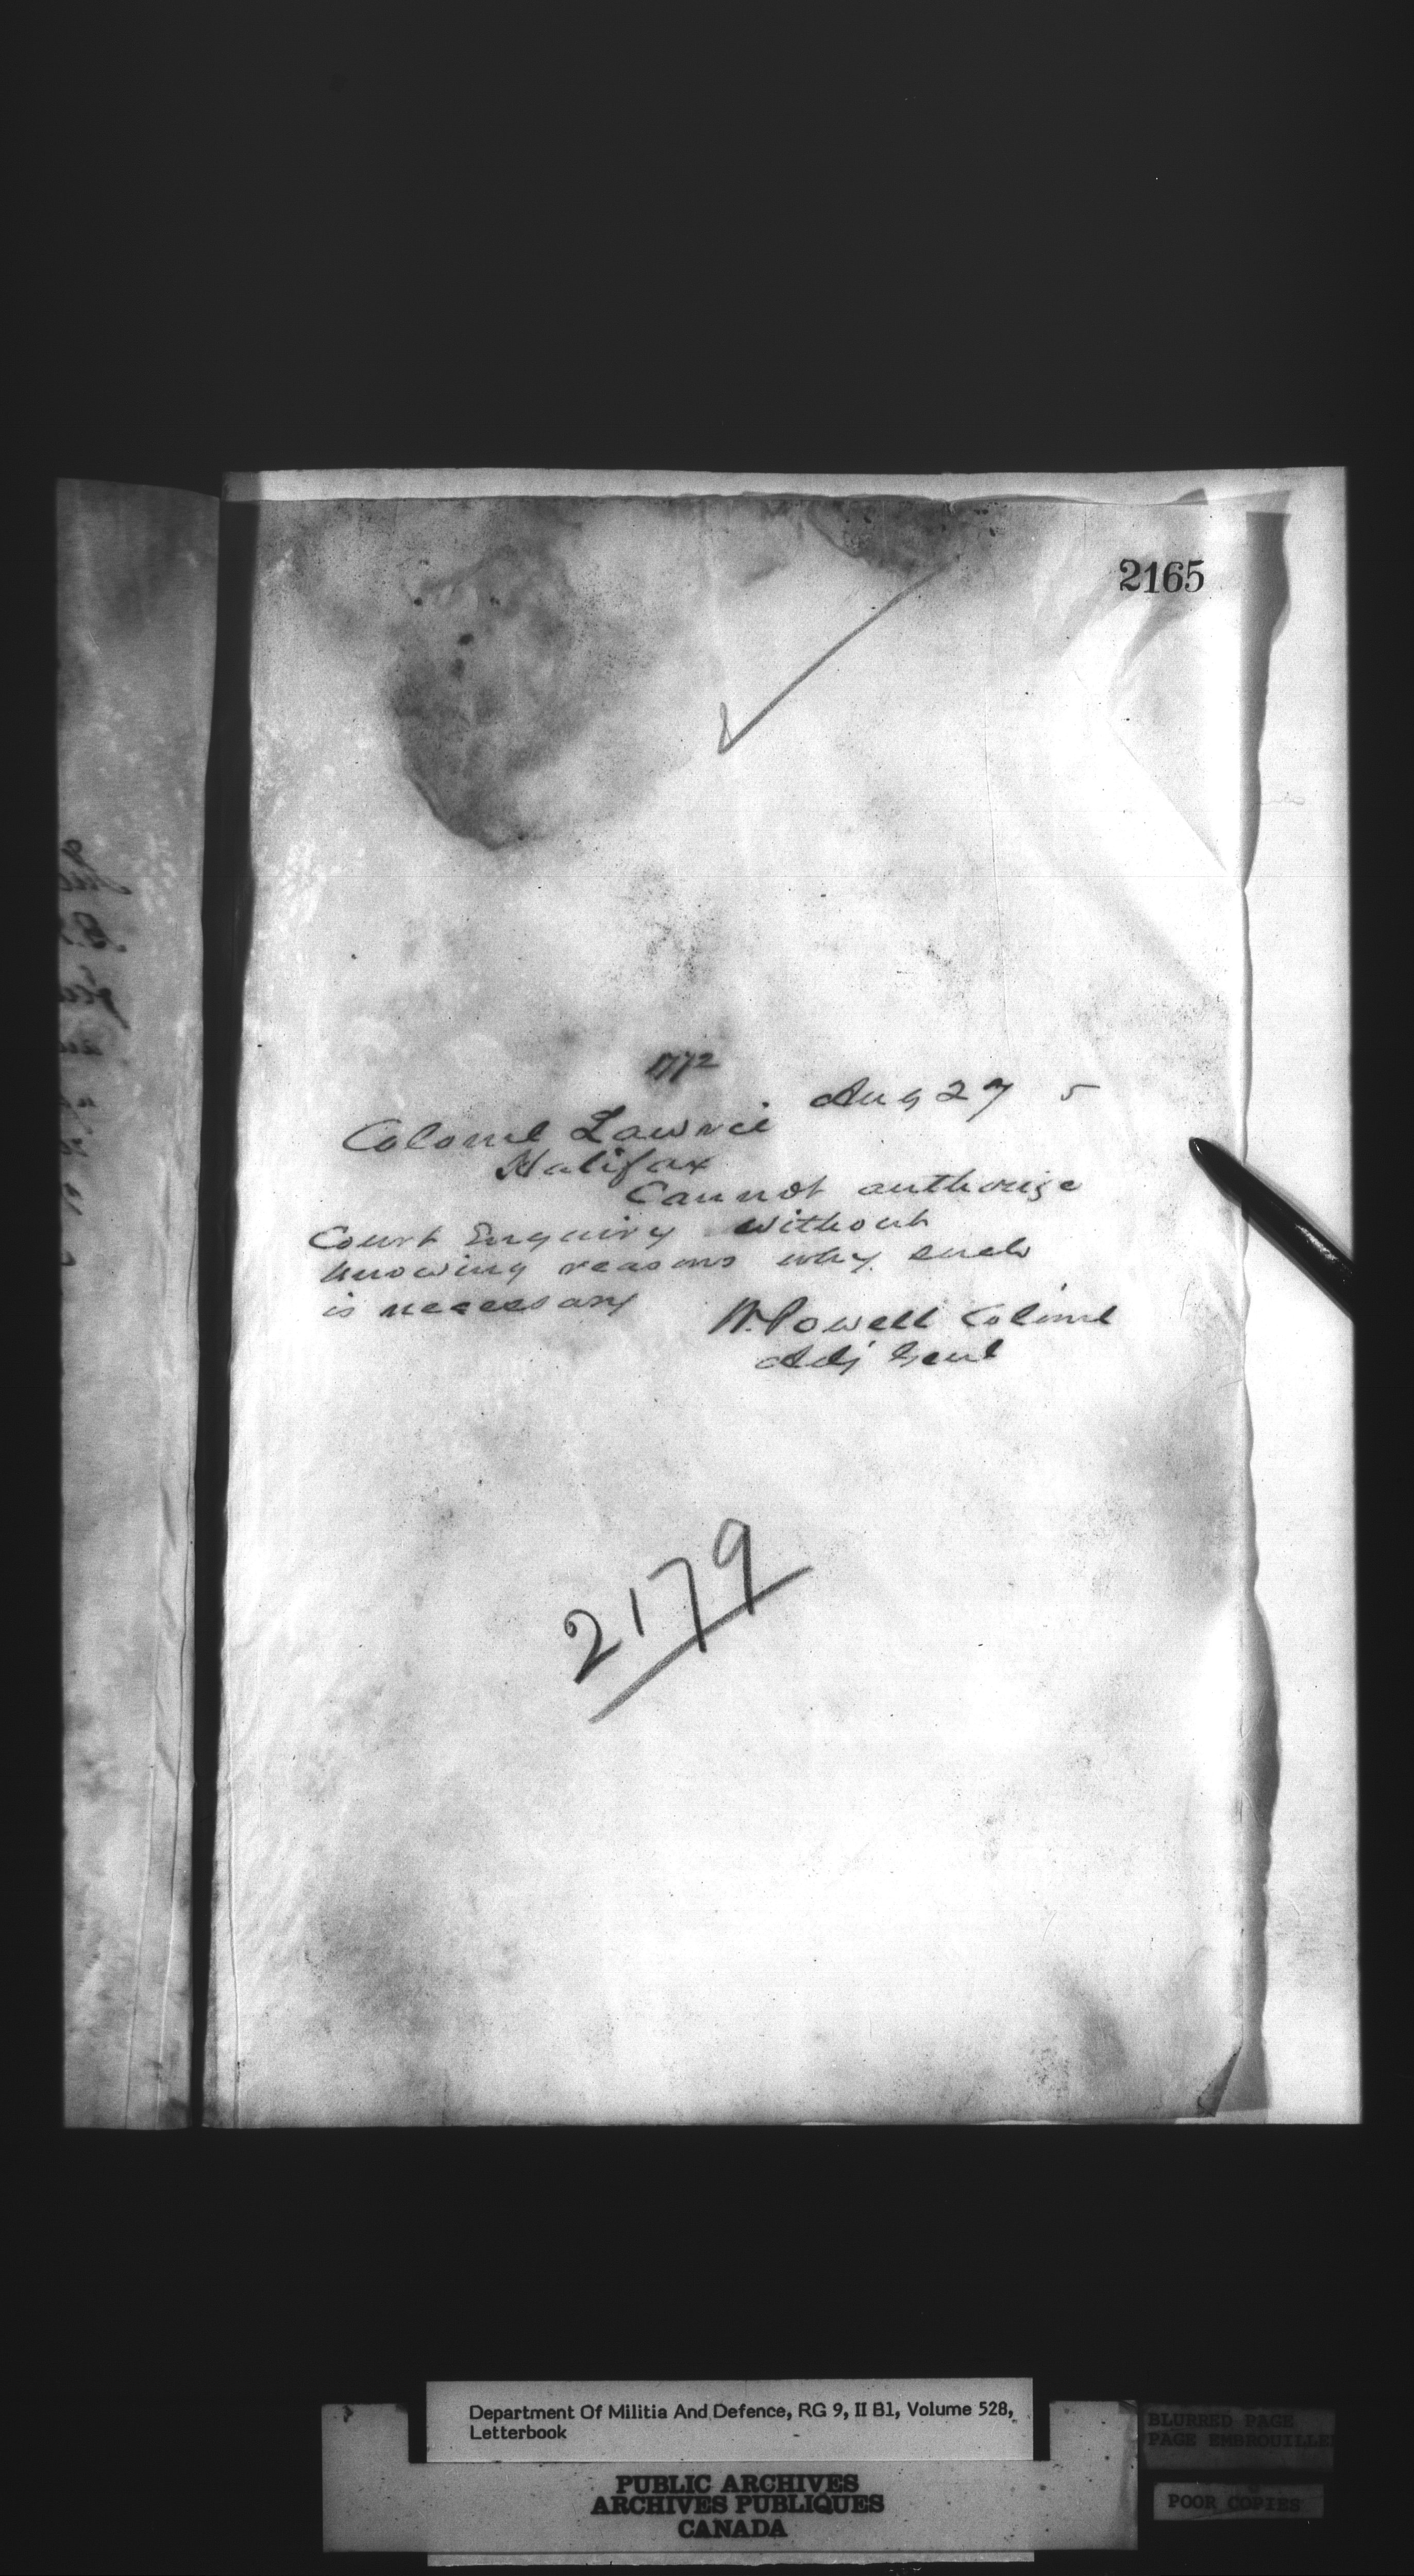 2165
1772
Aug 27 5
Colonel Lawrie
Halifax
Cannot authorize
Court Enquiry without
knowing reasons why such
is necessary
W. Powell Colonel
Adj Genl
2179
Department Of Militia And Defence, RG 9, II B1, Volume 528,
Letterbook
PUBLIC ARCHIVES
ARCHIVES PUBLIQUES
CANADA
BLURRED PAGE
PAGE EMBROUILLE
POOR COPIES